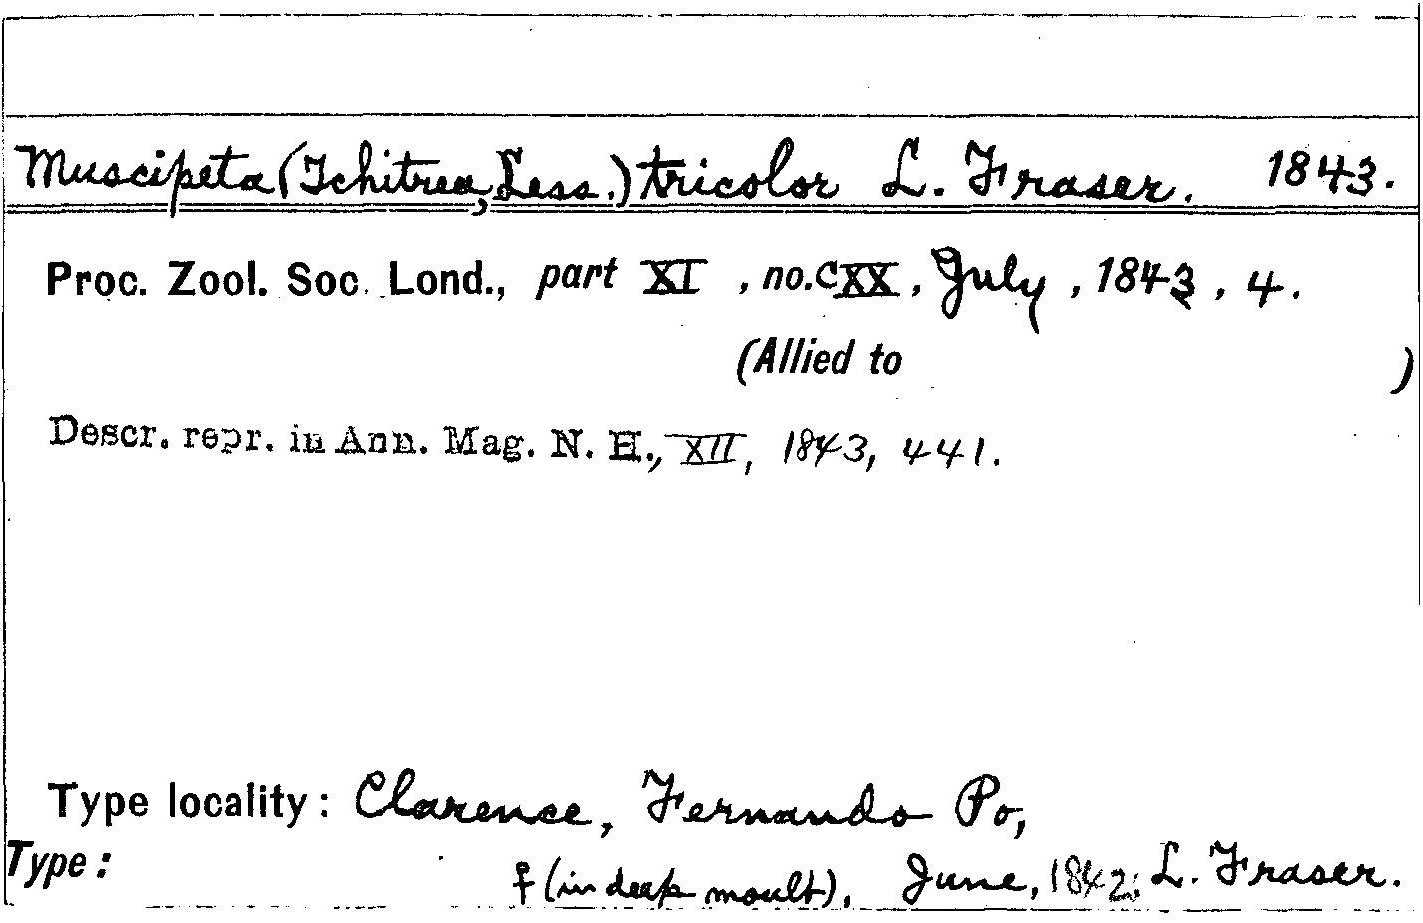 Muscipeta (Tchitrea, Less.) tricolor L. Fraser. 1843.
Proc. Zool. Soc. Lond., part XI, no. CXX, July, 1843, 4.
(Allied to )
Descr. repr. in Ann. Mag. N. H., XII, 1843, 441.
Type locality: Clarence, Fernando Po,
Type: ♀ (in deep moult), June, 1842; L. Fraser.